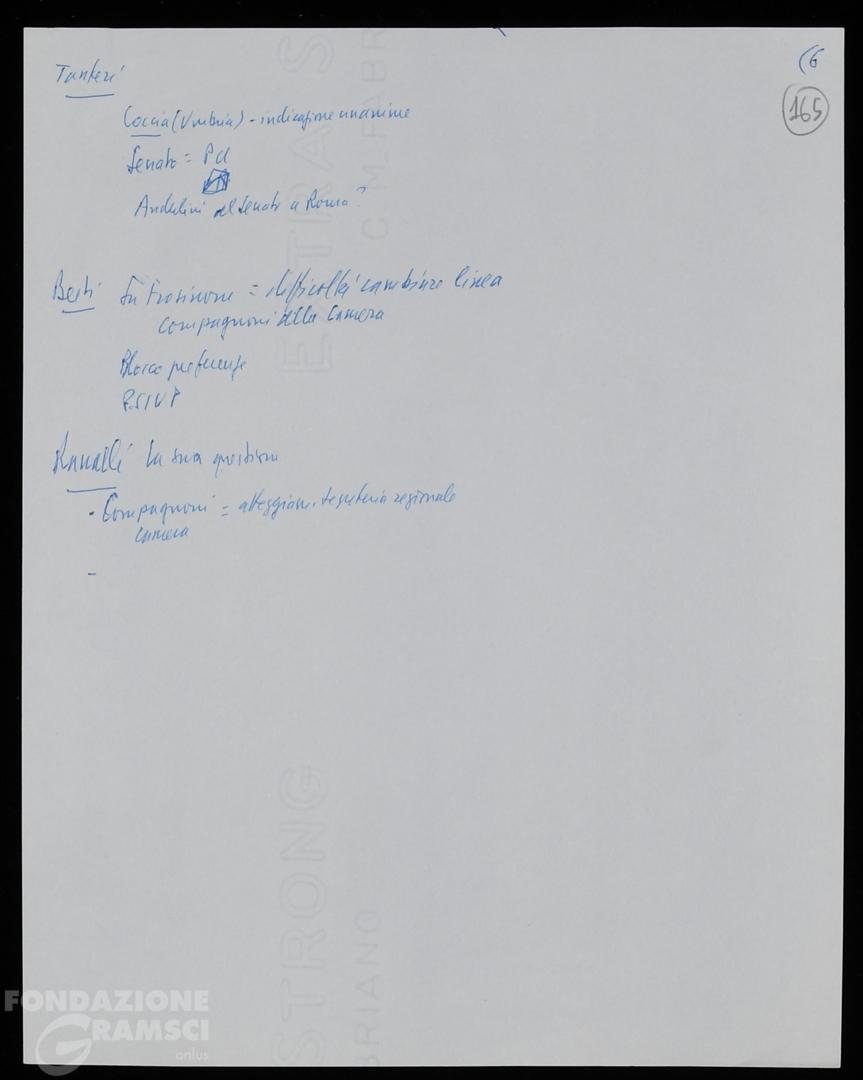 (6
165
Tanteri
Coccia (Umbria) - indicazione unanime
Senato = Pci
Anderlini al Senato a Roma?
Berti Su Frosinone = difficoltà cambiare linea
Compagnoni alla Camera
Blocco preferenze
PSIUP
Ranalli La sua questione
- Compagnoni = atteggiam. segreteria regionale
Camera
-
EXTRA STRONG
FONDAZIONE
GRAMSCI
onlus